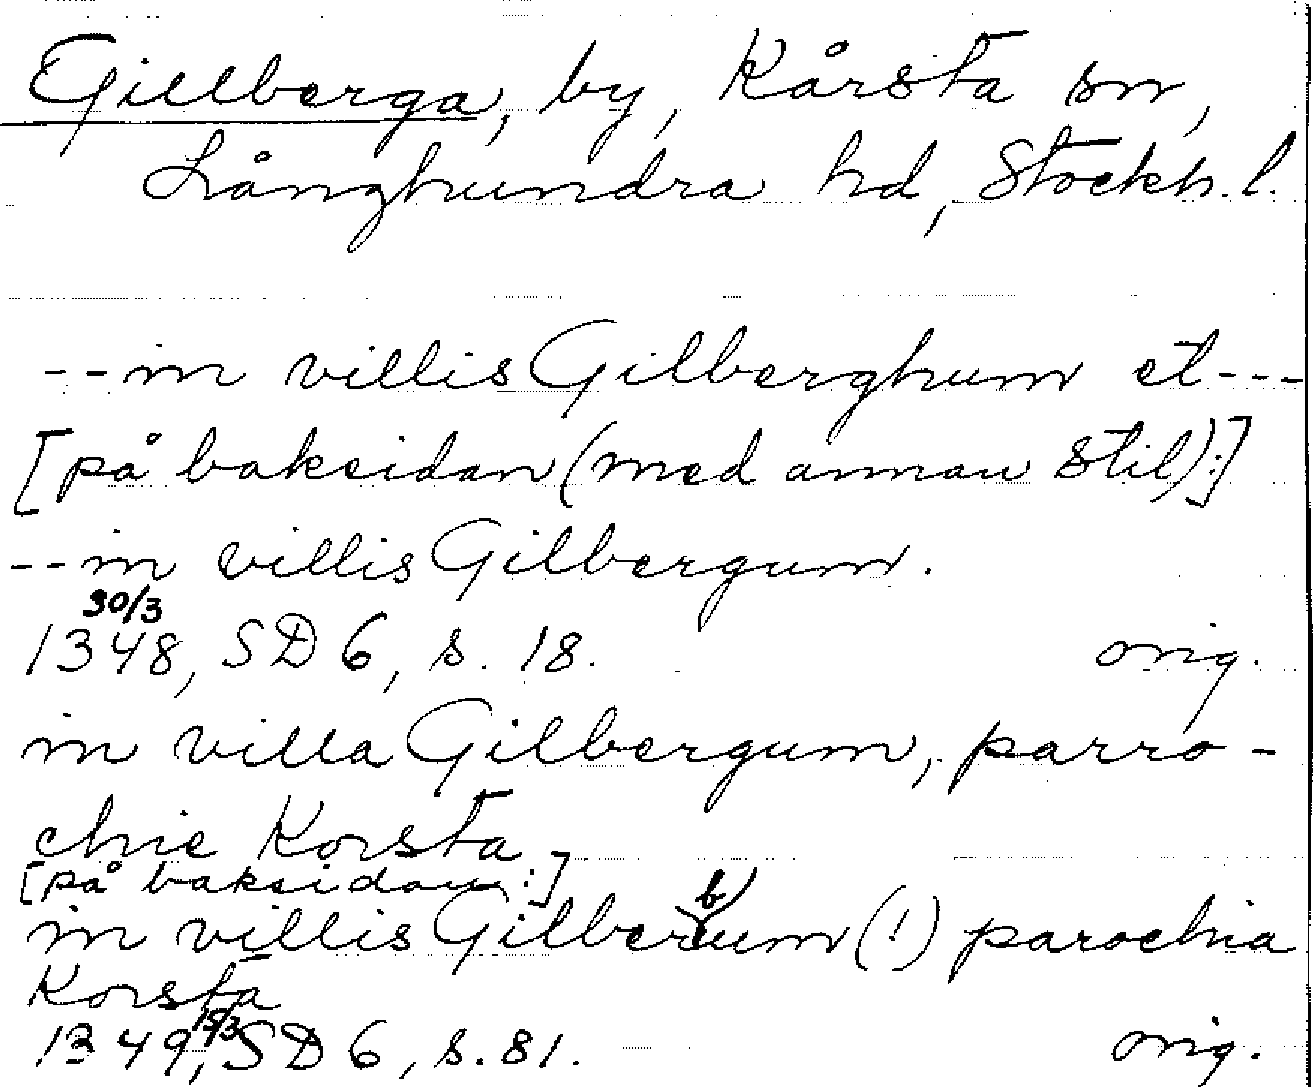 Gillberga, by, Kårsta sn,
Långhundra hd, Stockh. l.
--in villis Gilberghum et---
[på baksidan (med annan stil):]
--in villis Gilbergum.
30/3
1348, SD 6, s. 18. orig.
in villa Gilbergum, parro-
chie Korsta
[på baksidan:]
in villis Gilberbum (!) parochia
Korsta
1349, SD 6, s. 81. orig.